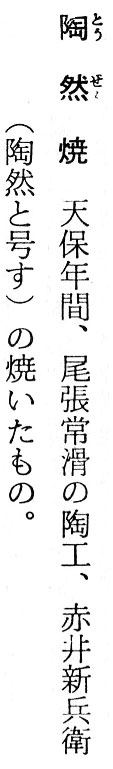 陶然焼 天保年間、尾張常滑の陶工、赤井新兵衛
（陶然と号す）の焼いたもの。
とう
ぜん